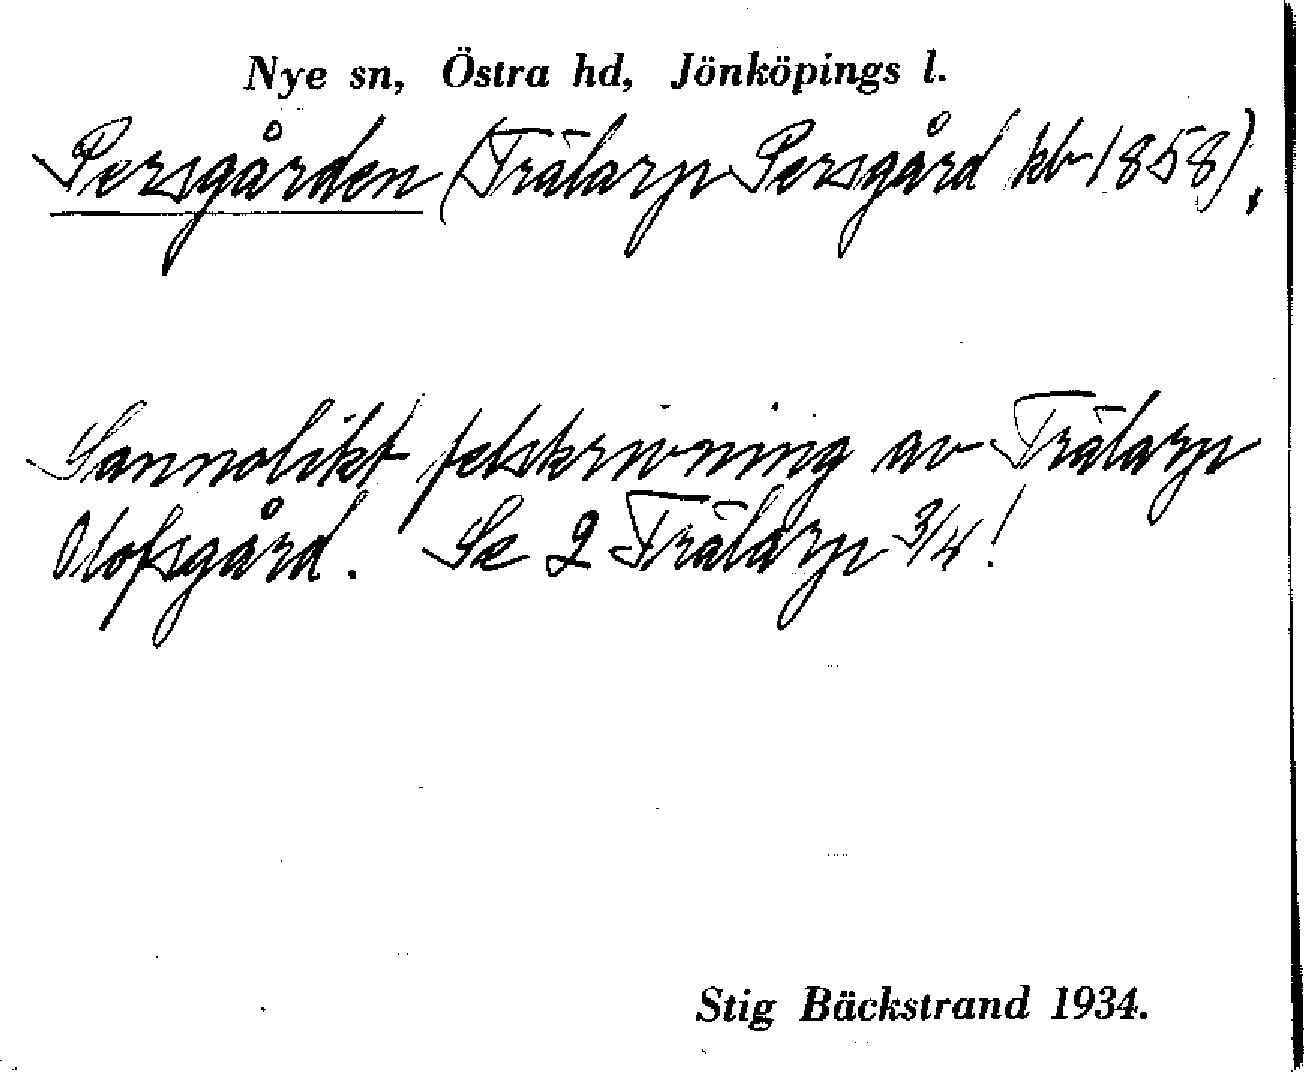 Nye sn, Östra hd, Jönköpings l.
Persgården (Trälarp Persgård kb 1858).
Sannolikt felskrivning av Trälarp
Olofsgård. Se 2 Trälarp 3/4!
Stig Bäckstrand 1934.